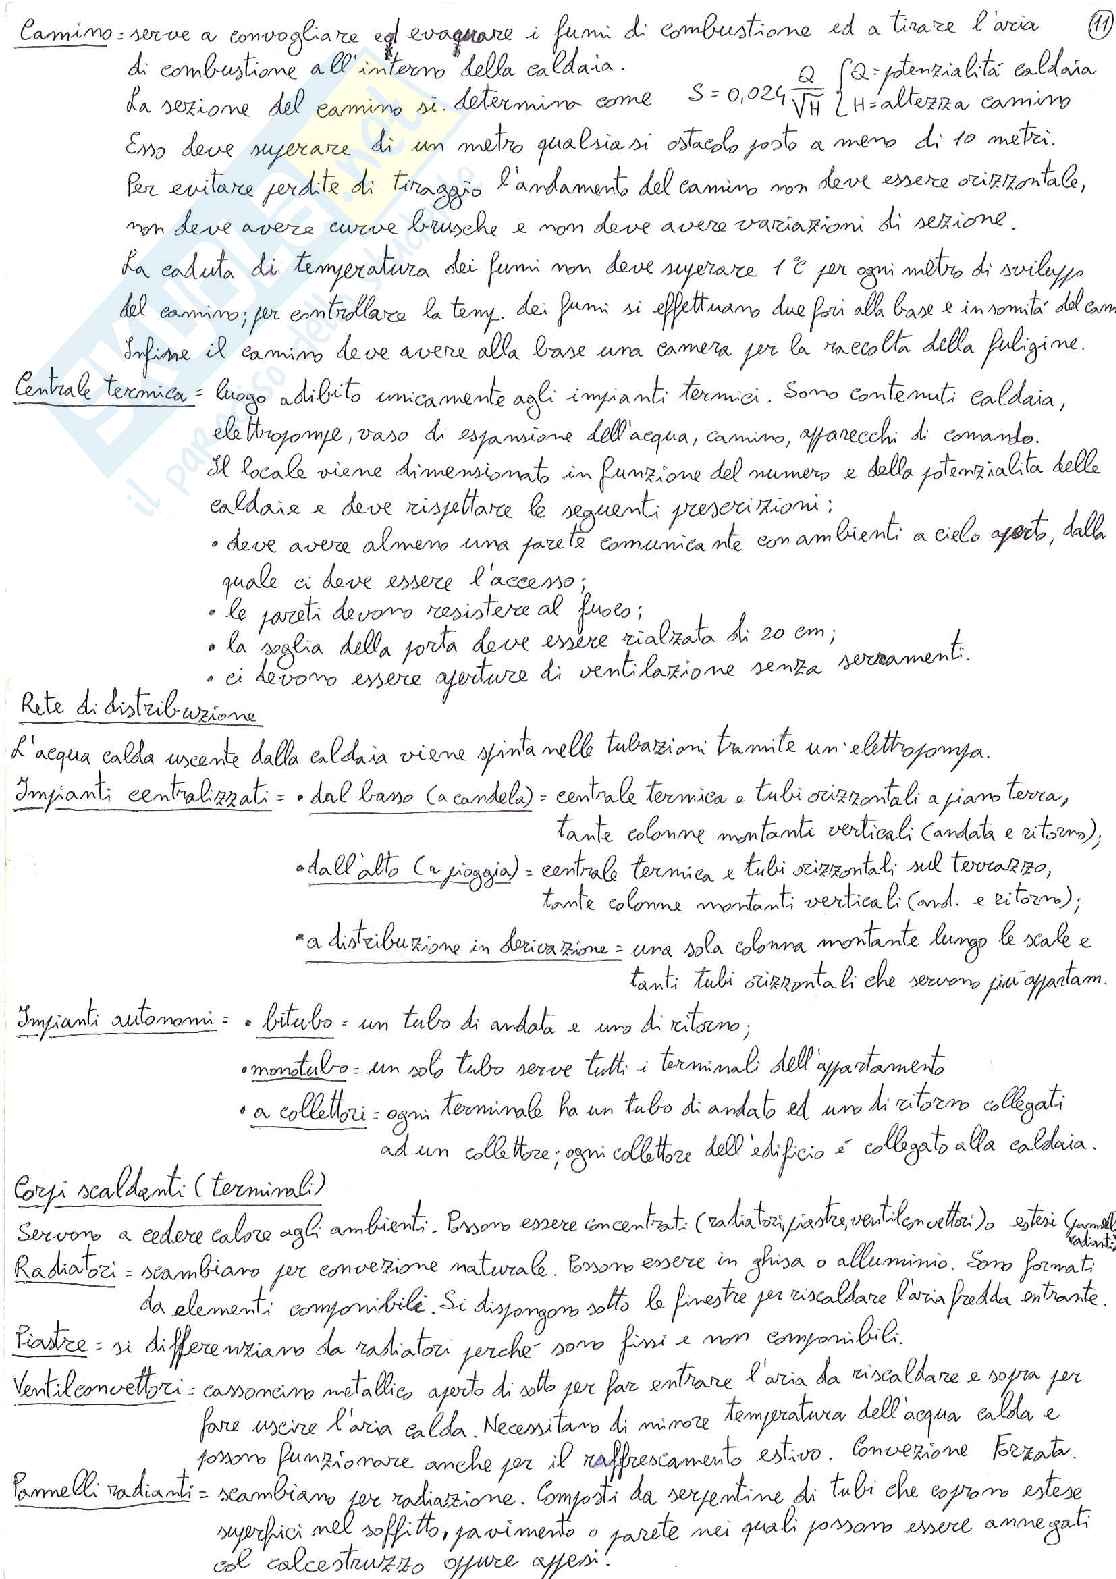 11
Camino = serve a convogliare ed evacuare i fumi di combustione ed a tirare l'aria
di combustione all'interno della caldaia.
La sezione del camino si determina come S = 0,024 Q/√H { Q = potenzialitá caldaia
H = altezza camino
Esso deve superare di un metro qualsiasi ostacolo posto a meno di 10 metri.
Per evitare perdite di tiraggio l'andamento del camino non deve essere orizzontale,
non deve avere curve brusche e non deve avere variazioni di sezione.
La caduta di temperatura dei fumi non deve superare 1°C per ogni metro di sviluppo
del camino; per controllare la temp. dei fumi si effettuano due fori alla base e in somitá del cam
Infine il camino deve avere alla base una camera per la raccolta della fuligine.
Centrale termica = luogo adibito unicamente agli impianti termici. Sono contenuti caldaia,
elettropompe, vaso di espansione dell'acqua, camino, apparecchi di comando.
Il locale viene dimensionato in funzione del numero e della potenzialita delle
caldaie e deve rispettare le seguenti prescrizioni:
• deve avere almeno una parete comunicante con ambienti a cielo aperto, dalla
quale ci deve essere l'accesso;
• le pareti devono resistere al fuoco;
• la soglia della porta deve essere rialzata di 20 cm;
• ci devono essere aperture di ventilazione senza serramenti.
Rete di distribuzione
L'acqua calda uscente dalla caldaia viene spinta nelle tubazioni tramite un'elettropompa.
Impianti centralizzati = • dal basso (a candela) = centrale termica e tubi orizzontali a piano terra,
tante colonne montanti verticali (andata e ritorno);
• dall'alto (a pioggia) = centrale termica e tubi orizzontali sul terrazzo,
tante colonne montanti verticali (and. e ritorno);
• a distribuzione in derivazione = una sola colonna montante lungo le scale e
tanti tubi orizzontali che servono piú appartam.
Impianti autonomi = • bitubo = un tubo di andata e uno di ritorno;
• monotubo = un solo tubo serve tutti i terminali dell'appartamento
• a collettori = ogni terminale ha un tubo di andato ed uno di ritorno collegati
ad un collettore; ogni collettore dell'edificio é collegato alla caldaia.
Corpi scaldanti (terminali)
Servono a cedere calore agli ambienti. Possono essere concentrati (radiatori, piastre, ventilconvettori) o estesi (pannelli
radianti)
Radiatori = scambiano per convezione naturale. Possono essere in ghisa o alluminio. Sono formati
da elementi componibili. Si dispongono sotto le finestre per riscaldare l'aria fredda entrante.
Piastre = si differenziano da radiatori perché sono fissi e non componibili.
Ventilconvettori = cassoncino metallico aperto di sotto per far entrare l'aria da riscaldare e sopra per
fare uscire l'aria calda. Necessitano di minore temperatura dell'acqua calda e
possono funzionare anche per il raffrescamento estivo. Convezione Forzata.
Pannelli radianti = scambiano per radiazione. Composti da serpentine di tubi che coprono estese
superfici nel soffitto, pavimento o parete nei quali possono essere annegati
col calcestruzzo oppure appesi.